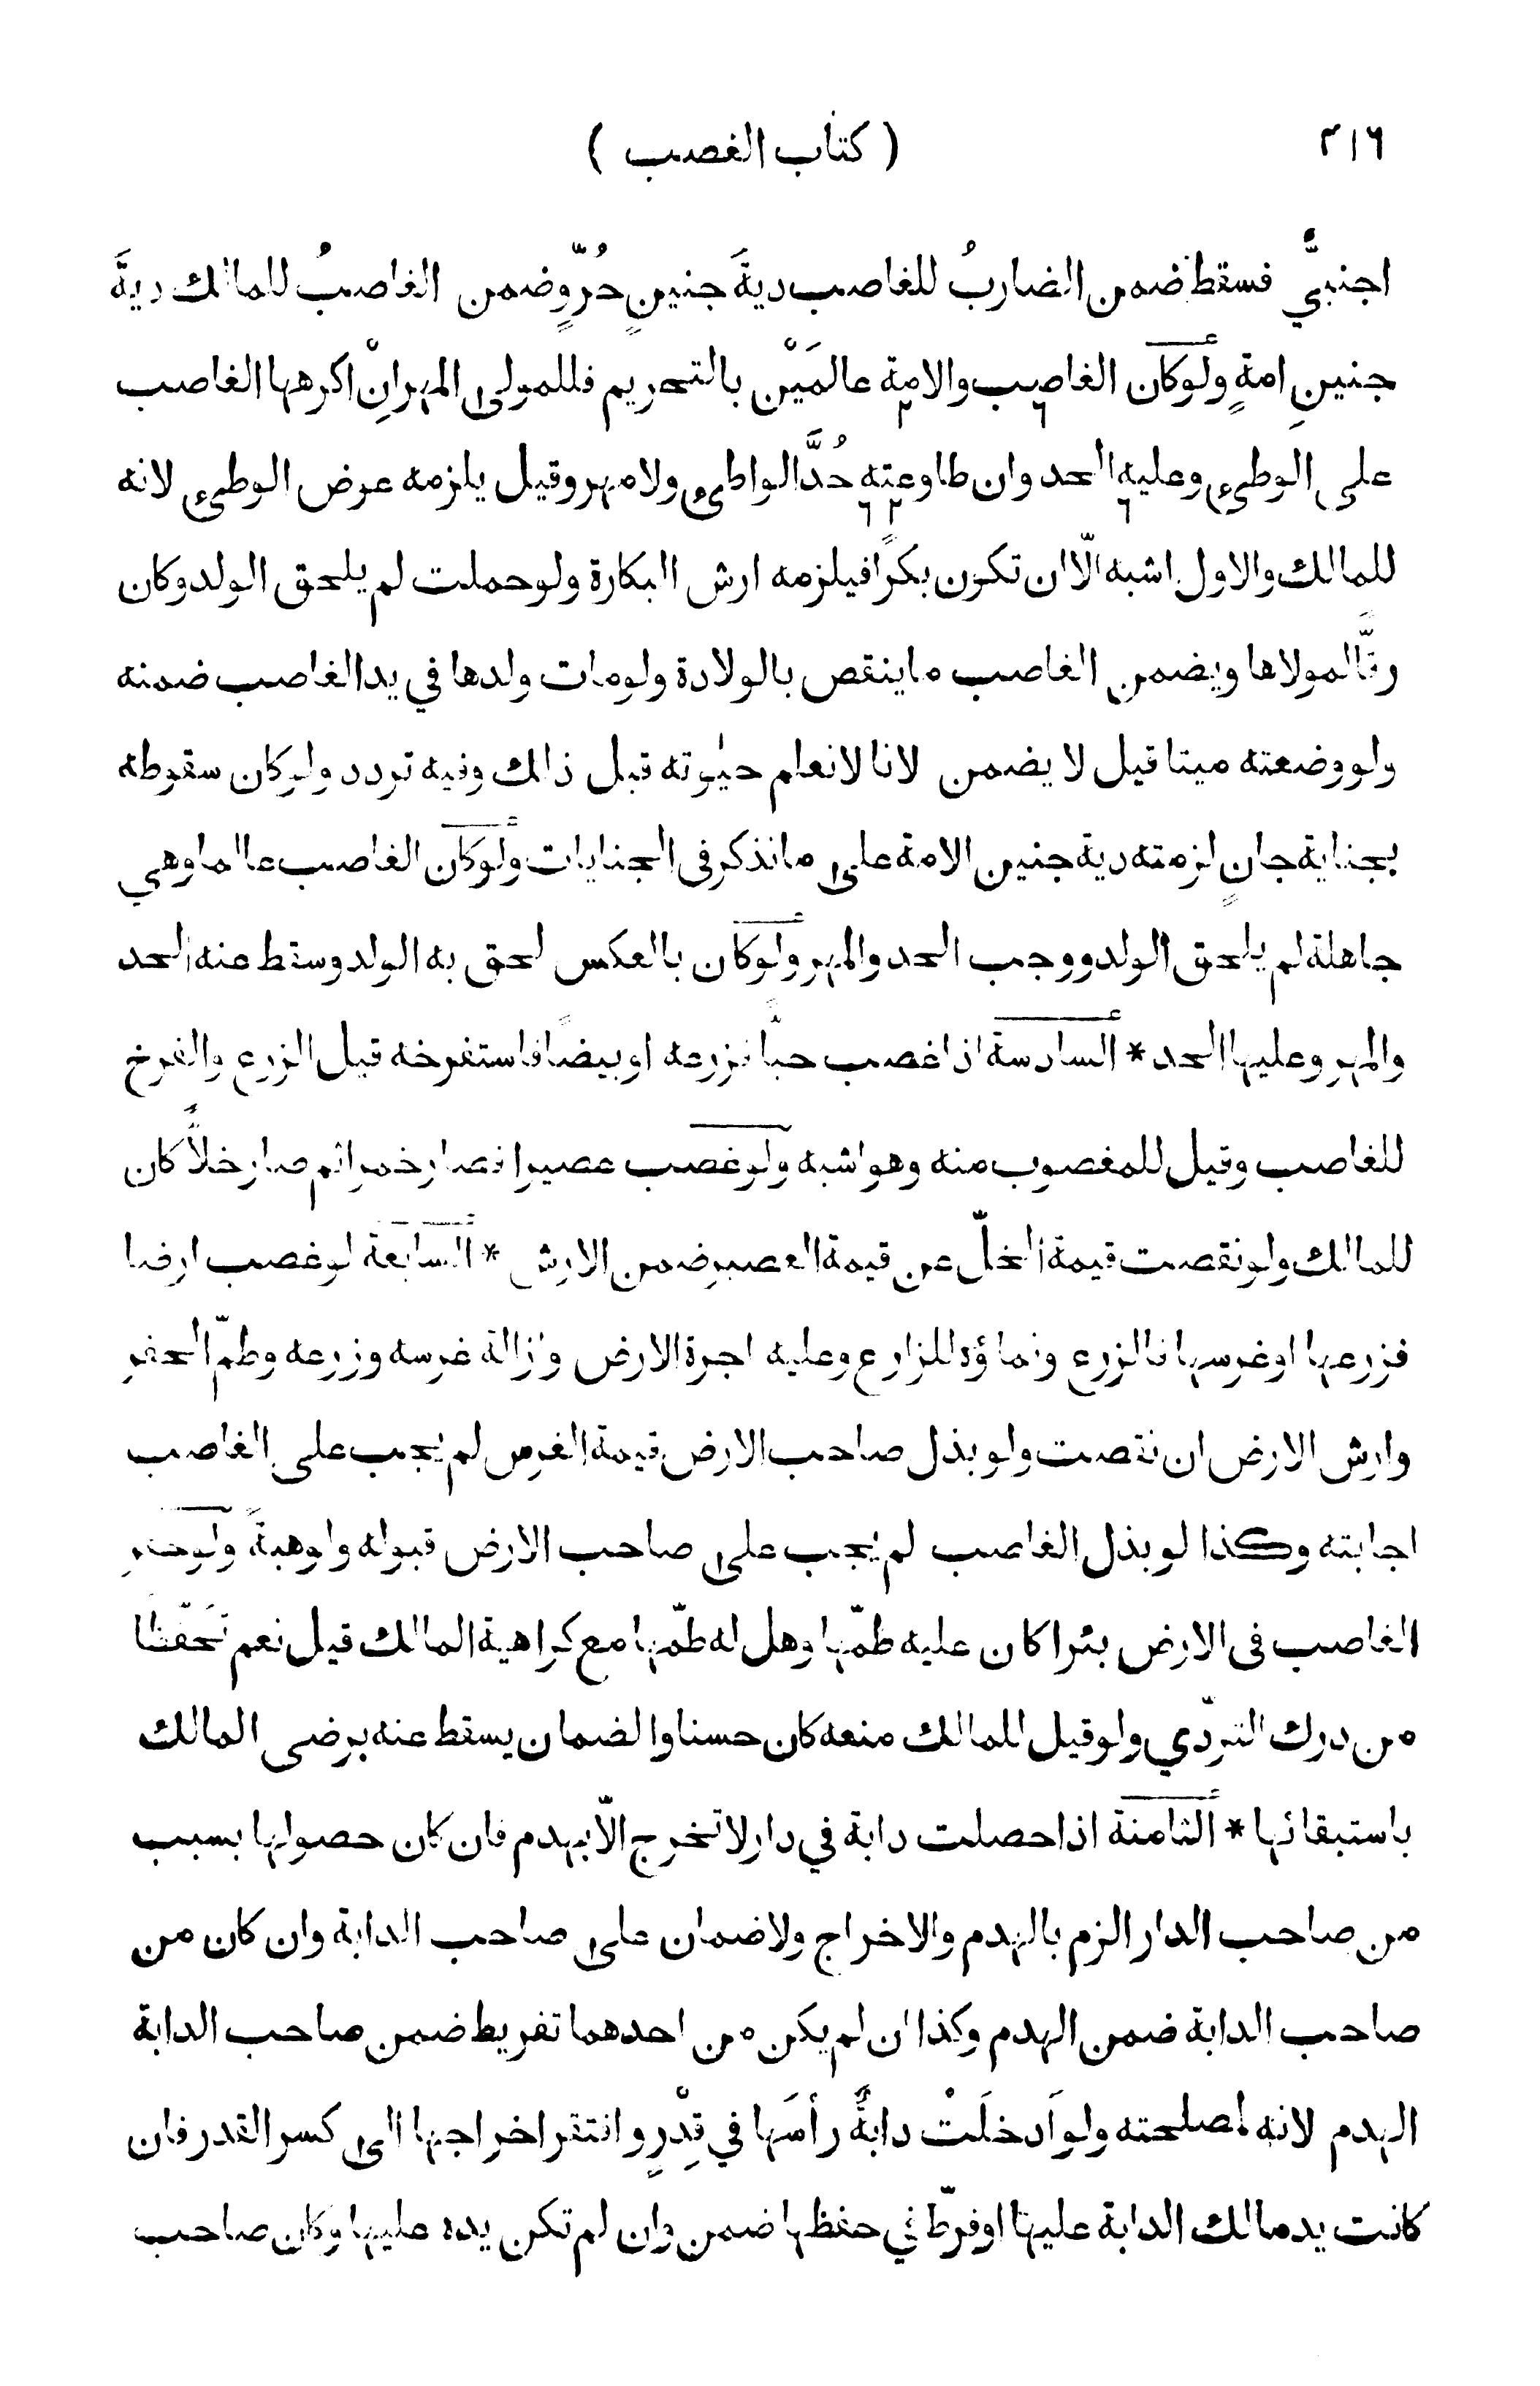 ٣١٦ ( كتاب الغصب )
اجنبيٌّ فسقط ضمن الضاربُ للغاصب ديةَ جنينٍ حُرٍّ وضمن الغاصبُ للمالك ديةَ
جنينِ امةٍ ولوكان الغاصب والامة عالمَيْن بالتحريم فللمولى المهر انِ اكرهها الغاصب
على الوطىء وعليه الحد وان طاوعته حُدَّ الواطىء ولا مهر وقيل يلزمه عوض الوطىء لانه
للمالك والاول اشبه الّا ان تكون بكرًا فيلزمه ارش البكارة ولو حملت لم يلحق الولد وكان
رقًّا لمولاها ويضمن الغاصب ما ينقص بالولادة ولومات ولدها في يد الغاصب ضمنه
ولو وضعته ميتا قيل لا يضمن لانا لا نعلم حيٰوته قبل ذلك وفيه تردد ولوكان سقوطه
بجناية جانٍ لزمته دية جنين الامة على ما نذكر فى الجنايات ولوكان الغاصب عالما وهي
جاهلة لم يلحق الولد ووجب الحد والمهر ولوكان بالعكس لحق به الولد وسقط عنه الحد
والمهر وعليها الحد * السادسة اذا غصب حبًّا فزرعه او بيضًا فاستفرخه قيل الزرع والفرخ
للغاصب وقيل للمغصوب منه وهو اشبه ولو غصب عصيرا فصار خمرا ثم صار خلًّا كان
للمالك ولو نقصت قيمة الخلّ عن قيمة العصير ضمن الارش * السابعة لو غصب ارضا
فزرعها او غرسها فالزرع ونماؤه للزارع وعليه اجرة الارض وازالة غرسه وزرعه وطمّ الحفر
وارش الارض ان نقصت ولو بذل صاحب الارض قيمة الغرس لم يجب على الغاصب
اجابته وكذا لو بذل الغاصب لم يجب على صاحب الارض قبوله ولو هبةً ولو حفر
الغاصب فى الارض بئرا كان عليه طمّها وهل له طمّها مع كراهية المالك قيل نعم تَحَفّظًا
من درك التردّي ولو قيل للمالك منعه كان حسنا والضمان يسقط عنه برضى المالك
باستبقائها * الثامنة اذا حصلت دابة في دار لا تخرج الّا بهدم فان كان حصولها بسبب
من صاحب الدار الزم بالهدم والاخراج ولا ضمان على صاحب الدابة وان كان من
صاحب الدابة ضمن الهدم وكذا ان لم يكن من احدهما تفريط ضمن صاحب الدابة
الهدم لانه لمصلحته ولو اَدخلَتْ دابةٌ رأسَها في قِدْرٍ وافتقر اخراجها الى كسر القدر فان
كانت يد مالك الدابة عليها او فرّط في حفظها ضمن وان لم تكن يده عليها وكان صاحب